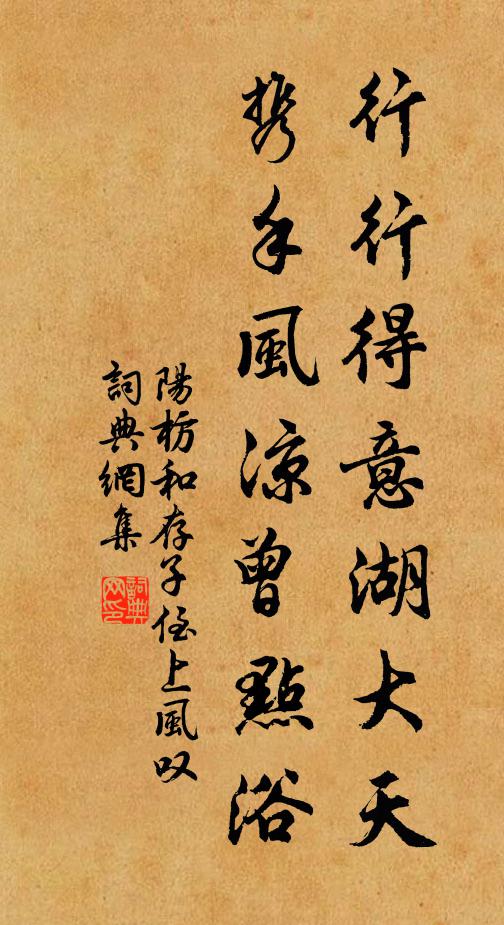 行行得意湖大天
携手風涼曾點浴
陽枋和存子侄上風叹
詞典網集
詞典網印